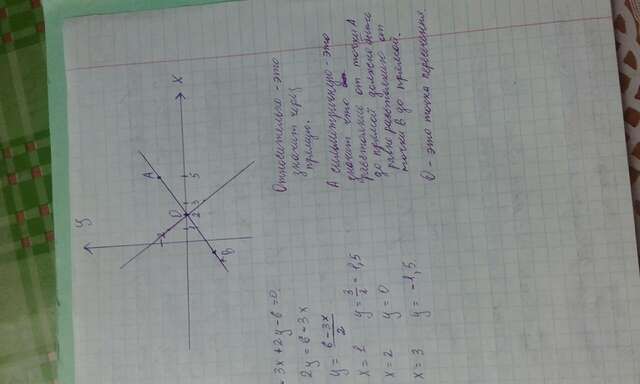 y
x
A
5
3
2
1
O
-2
B
-3x+2y-6=0
2y=6-3x
y=6-3x/2
x=1 y=3/2=1,5
x=2 y=0
x=3 y=-1,5
Относительно - это
значит через
прямую.
А симметричную - это
значит что
расстояние от точки А
до прямой должно быть
равно расстоянию от
точки В до прямой.
О - это точка пересечения.